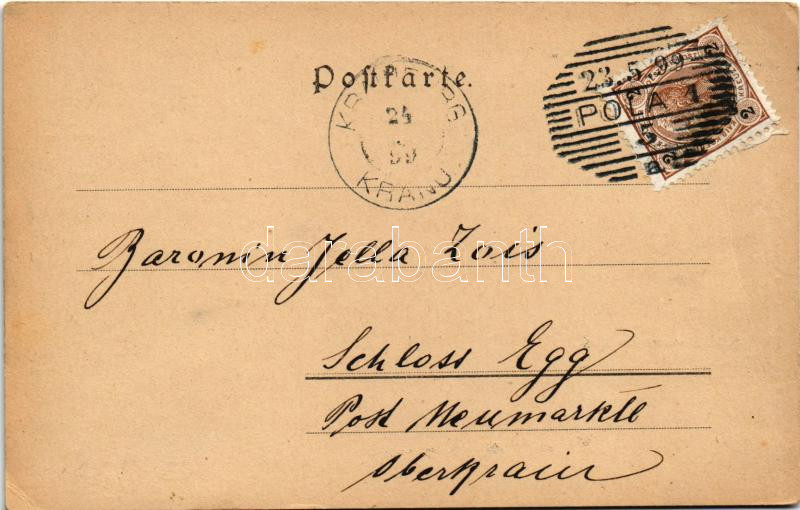 Postkarte.
KRAINBURG
24
5
99
KRANJ
23.5.99
POLA 1
2
2
Baronin Jella Zois
Schloss Egg
Post Neumarktl
Oberkrain
darabanth